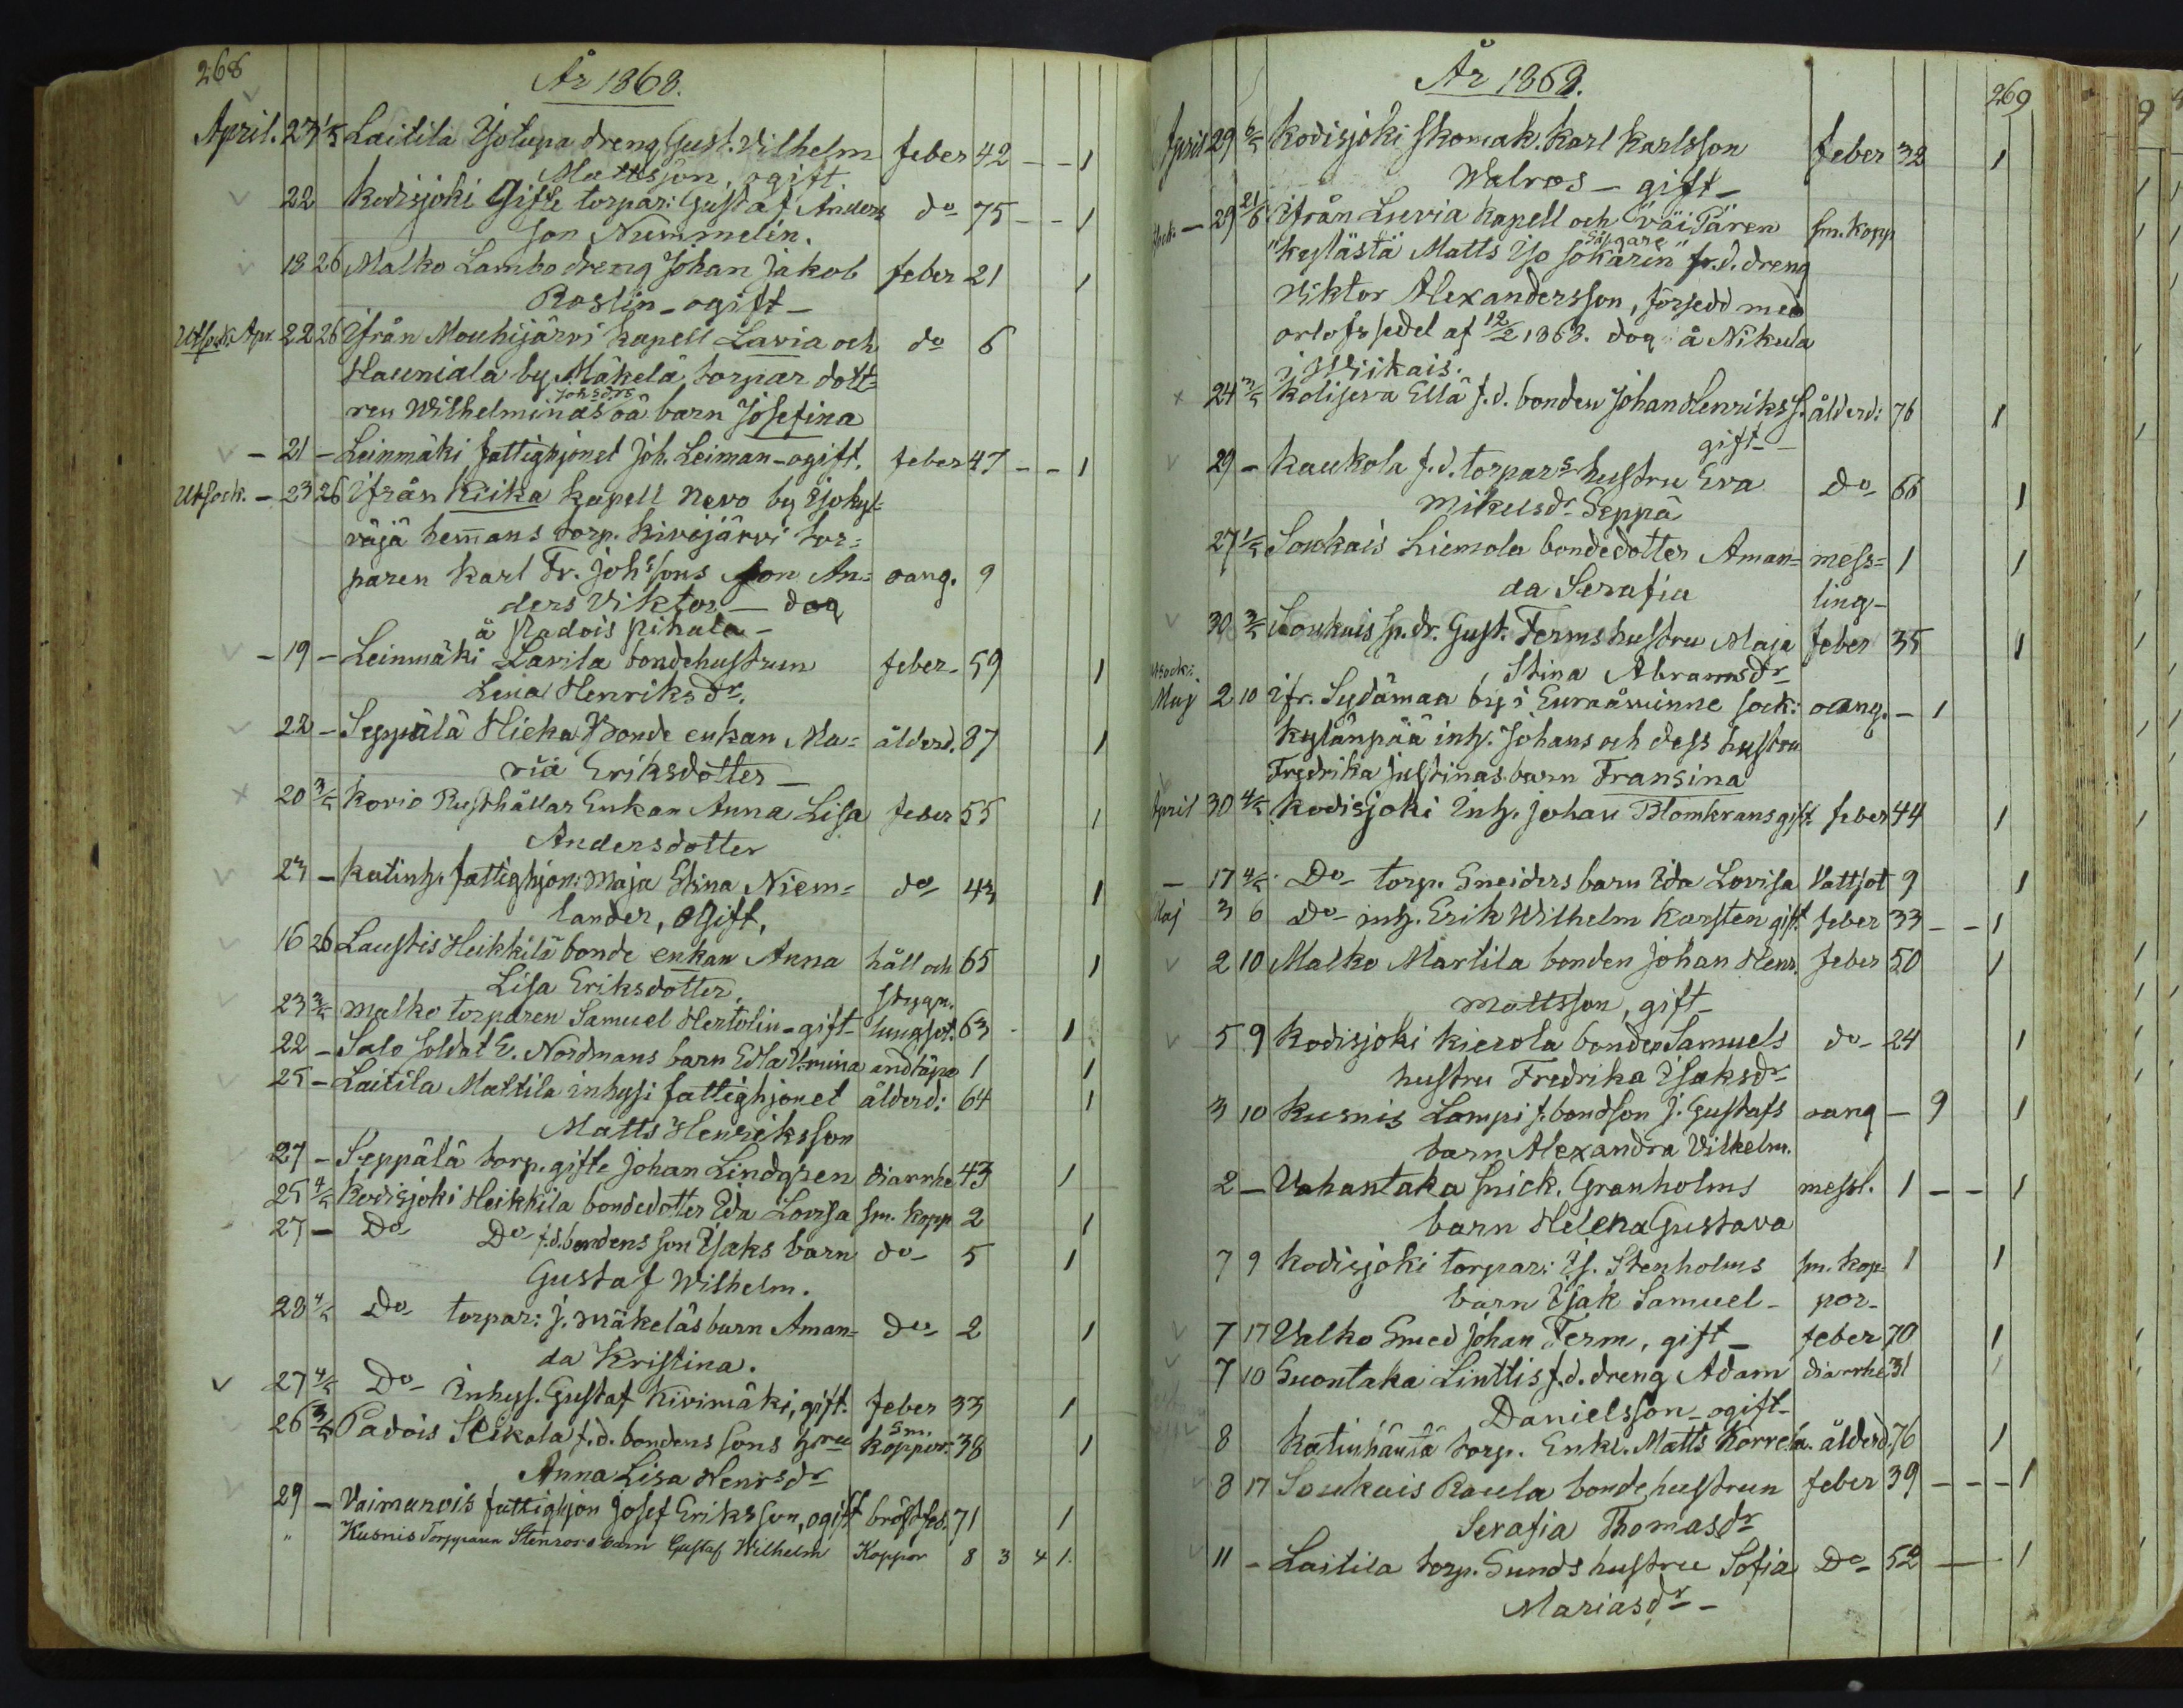 268
År 1868.
April. 23 1/5 Laitila Yötupa dreng Gust. Vilhelm feber 42 - - 1
Mattsson, ogift
22 Kodisjoki Gifte torpar: Gustaf Anders do 75 - - 1
son Nummelin.
18 26 Malko Lambo dreng Johan Jakob feber 21 1
Roslin - ogift -
Utsock. Apr. 22 26 Ifrån Mouhijärvi kapell Lavia och do 6
Hauniala by Mäkelä torpar dott=
ren Wilhelminas Johsdrs oä barn Josefina
- 21 - Leinmäki fattighjonet Joh. Leiman - ogift. feber 47 - - 1
Utsock. - 23 26 Ifrån Kiika kapell Nevo by
räjä hemans torp. Kivijärvi tor=
paren Karl Fr. Johssons son An= oang. 9
ders Viktor - dog
å Padois Pihala -
- 19 - Leinmäki Lavila bondehustrun feber - 59 1
Lena Henriksdr.
22 - Seppälä Hieka bonde enkan Ma= ålderd. 87 1
ria Eriksdotter -
20 3/5 Korio Rusthållar Enkan Anna Lisa feber 55 1
Andersdotter
23 - Katinh. fattighjon: Maja Stina Niem= do 43 1
lander, ogift,
16 26 Laustis Heikkilä bonde enkan Anna håll och 65 1
Lisa Eriksdotter. stygn.
23 3/5 Malko torparen Samuel Hertolin - gift - lungsot. 63 - 1
22 - Salo soldat E. Nordmans barn Edla Vmina andtäpa 1 1
25 - Laitila Mattila inhysi fattighjonet ålderd: 64 1
Matts Henriksson
27 - Seppälä torp. gifte Johan Lindgren diarrhe 43 1
25 4/5 Kodisjoki Heikkila bondedotter Ida Lovisa sm. kopp 2
27 - Do Do f.d. bondens son Isaks barn do - 5 1
Gustaf Wilhelm.
28 4/5 Do torpar: J. Mäkeläs barn Aman= Do 2 1
da Kristina.
27 4/5 Do Inhys. Gustaf Kivimäki, gift. feber 33 1
26 3/5 Padois Seikola f.d. bondens sons hru sm. koppor. 38 1
Anna Lisa Henrsdr
29 - Vaimarois fattighjon Josef Eriksson, ogift bröstfeb. 71 1
" Kusnis Torpparen Stenroos barn Gustaf Wilhelm Koppor 8 3 4 1.
År 1868.
269
April 29 6/5 Kodisjoki skomak. Karl Karlsson feber 32 1
Walros - gift -
- 29 21/6 Ifrån Luvia kapell och Väi Pären sm. kopp
"kylästä Matts Iso Sökarin" fr. d. dreng
Viktor Alexandersson, försedd med
orlofssedel af 12/2 1868. dog å Nikula
i Wiikais.
24 3/5 Kolijeva Ellä f.d. bonden Johan Henrikss. ålderd: 76 1
gift -
29 - Kaukola f.d. torpars hustru Eva do 66 1
Mikelsdr Seppä
27 1/5 Soukais Liemola bondedotter Aman= mess= 1 1
da Serafia ling -
30 3/5 Soukais sp. dr. Gust. Ferms hustru Maja feber 35 1
Stina Abramsdr
Utsock:
Maj 2 10 ifr. Sydämaa by i Euraåminne sock: oang. - 1
kylänpää inh. Johans och dess hustru
Fredrika Justinas barn Fransina
April 30 4/5 Kodisjoki Inh. Johan Blomkrans gift. feber 44 1
- 17 4/5 Do - torp. Sneiders barn Ida Lovisa Vattsot 9 1
Maj 3 6 Do - inh. Erik Wilhelm Karsten gift feber 33 - - 1
2 10 Malko Martila bonden Johan Henr. feber 50 1
Mattsson, gift -
5 9 Kodisjoki Kierola bonden Samuels do - 24 1
hustru Fredrika Isaksdr
3 10 Kusnis Lampi f. bondson J. Gustafs oang - 9 1
barn Alexandra Vilhelm.
2 - Vahantaka snick. Granholms messl. 1 - - 1
barn Helena Gustava
7 9 Kodisjoki torpar: Is. Stenholms sm. kop= 1 1
barn Isak Samuel - por -
7 17 Valko Smed Johan Ferm, gift - feber 70 1
7 10 Suontaka Linttis f.d. dreng Adam diarrhe 31 1
Danielsson - ogift -
8 Katinhäntä torp. Enkl. Matts Korrelä. ålderd. 76 1
8 17 Soukais Raula bonde hustrun feber 39 - - - 1
Serafia Thomasdr
11 - Laitila torp. Sunds hustru Sofia Do - 52 - - 1
Mariasdr -